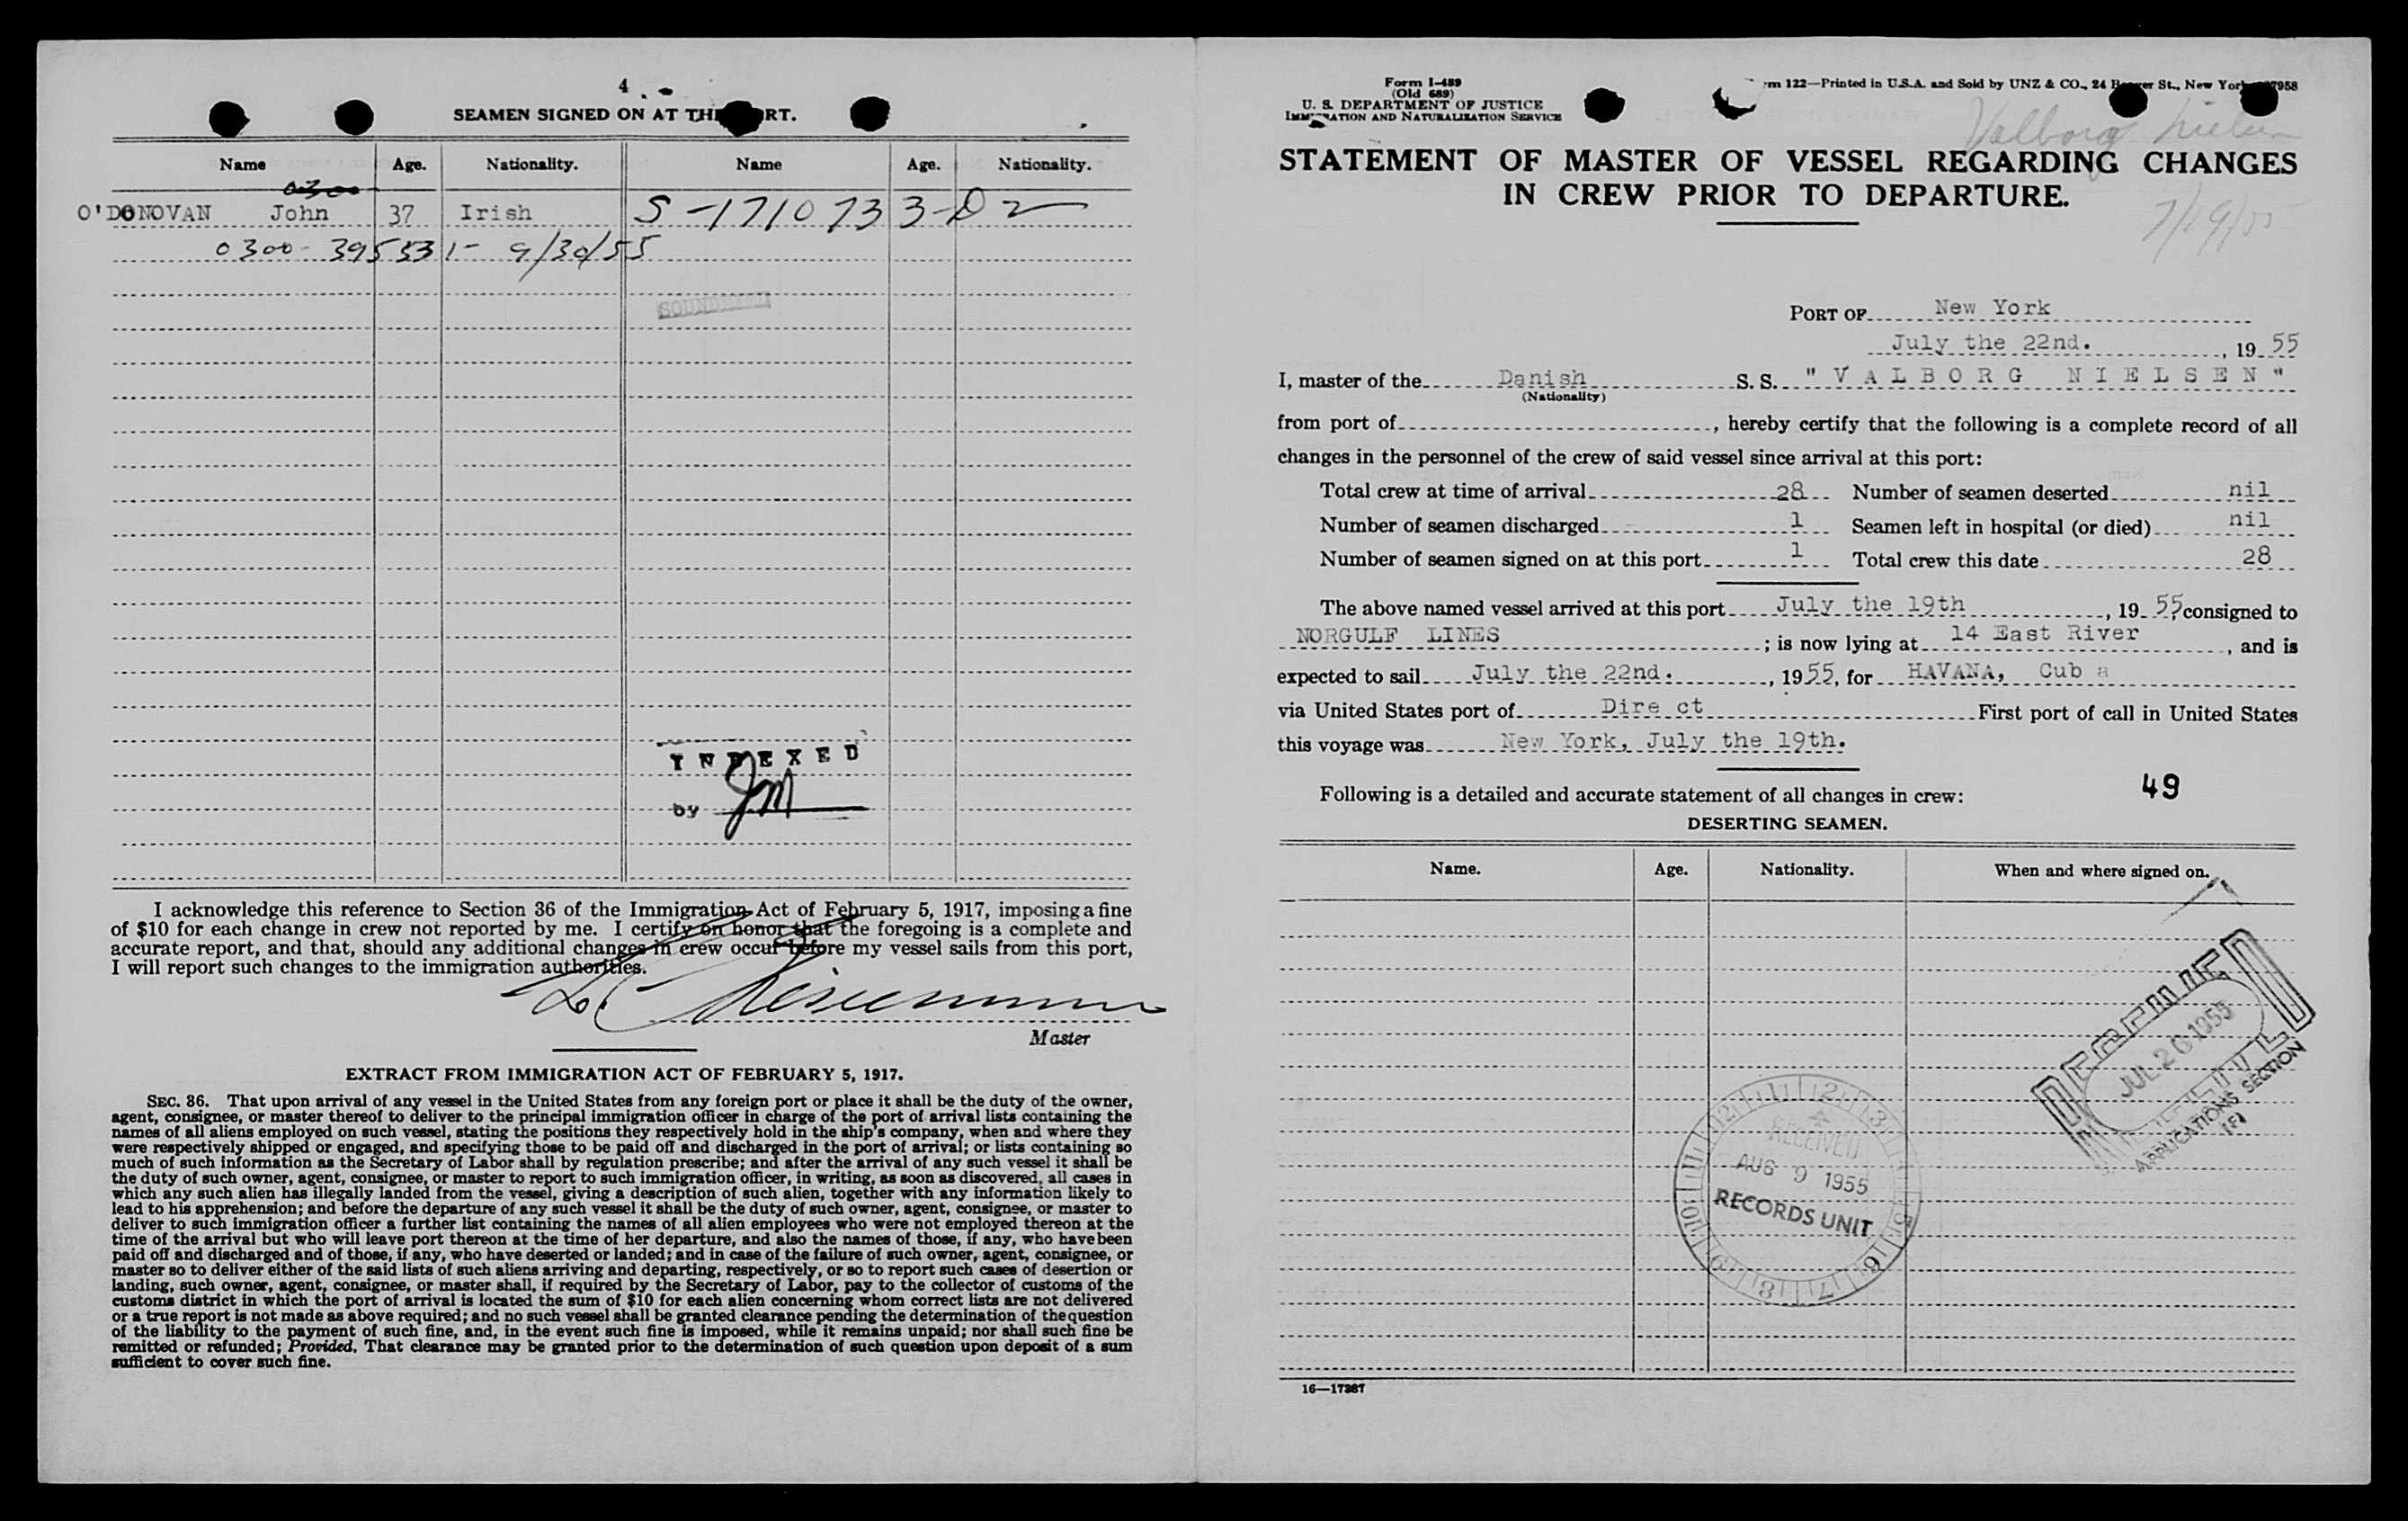 4
SEAMEN SIGNED ON AT TH RT.
Name Age. Nationality. Name Age. Nationality.
0300
O'DONOVAN John 37 Irish S-1710733-D2
0300-395531- 9/30/55
INDEXED
by JM
I acknowledge this reference to Section 36 of the Immigration Act of February 5, 1917, imposing a fine
of $10 for each change in crew not reported by me. I certify on honor that the foregoing is a complete and
accurate report, and that, should any additional changes in crew occur before my vessel sails from this port,
I will report such changes to the immigration authorities.
Master
EXTRACT FROM IMMIGRATION ACT OF FEBRUARY 5, 1917.
SEC. 36. That upon arrival of any vessel in the United States from any foreign port or place it shall be the duty of the owner,
agent, consignee, or master thereof to deliver to the principal immigration officer in charge of the port of arrival lists containing the
names of all aliens employed on such vessel, stating the positions they respectively hold in the ship's company, when and where they
were respectively shipped or engaged, and specifying those to be paid off and discharged in the port of arrival; or lists containing so
much of such information as the Secretary of Labor shall by regulation prescribe; and after the arrival of any such vessel it shall be
the duty of such owner, agent, consignee, or master to report to such immigration officer, in writing, as soon as discovered, all cases in
which any such alien has illegally landed from the vessel, giving a description of such alien, together with any information likely to
lead to his apprehension; and before the departure of any such vessel it shall be the duty of such owner, agent, consignee, or master to
deliver to such immigration officer a further list containing the names of all alien employees who were not employed thereon at the
time of the arrival but who will leave port thereon at the time of her departure, and also the names of those, if any, who have been
paid off and discharged and of those, if any, who have deserted or landed; and in case of the failure of such owner, agent, consignee, or
master so to deliver either of the said lists of such aliens arriving and departing, respectively, or so to report such cases of desertion or
landing, such owner, agent, consignee, or master shall, if required by the Secretary of Labor, pay to the collector of customs of the
customs district in which the port of arrival is located the sum of $10 for each alien concerning whom correct lists are not delivered
or a true report is not made as above required; and no such vessel shall be granted clearance pending the determination of the question
of the liability to the payment of such fine, and, in the event such fine is imposed, while it remains unpaid; nor shall such fine be
remitted or refunded; Provided, That clearance may be granted prior to the determination of such question upon deposit of a sum
sufficient to cover such fine.
Form I-489
(Old 689)
U. S. DEPARTMENT OF JUSTICE
IMMIGRATION AND NATURALIZATION SERVICE
rm 122—Printed in U.S.A. and Sold by UNZ & CO., 24 Beaver St., New York 7958
Valborg Nielsen
STATEMENT OF MASTER OF VESSEL REGARDING CHANGES
IN CREW PRIOR TO DEPARTURE.
7/19/55
PORT OF New York
July the 22nd. , 19 55
I, master of the Danish S. S. " V A L B O R G N I E L S E N "
(Nationality)
from port of , hereby certify that the following is a complete record of all
changes in the personnel of the crew of said vessel since arrival at this port:
Total crew at time of arrival 28 Number of seamen deserted nil
Number of seamen discharged 1 Seamen left in hospital (or died) nil
Number of seamen signed on at this port 1 Total crew this date 28
The above named vessel arrived at this port July the 19th , 19 55, consigned to
NORGULF LINES ; is now lying at 14 East River , and is
expected to sail July the 22nd. , 1955, for HAVANA, Cub a
via United States port of Dire ct First port of call in United States
this voyage was New York, July the 19th.
Following is a detailed and accurate statement of all changes in crew: 49
DESERTING SEAMEN.
Name. Age. Nationality. When and where signed on.
JUL 20 1955
APPLICATIONS SECTION
12 1 2 3 5 6 7 8 9 10 11
RECEIVED
AUG 9 1955
RECORDS UNIT
16—17387